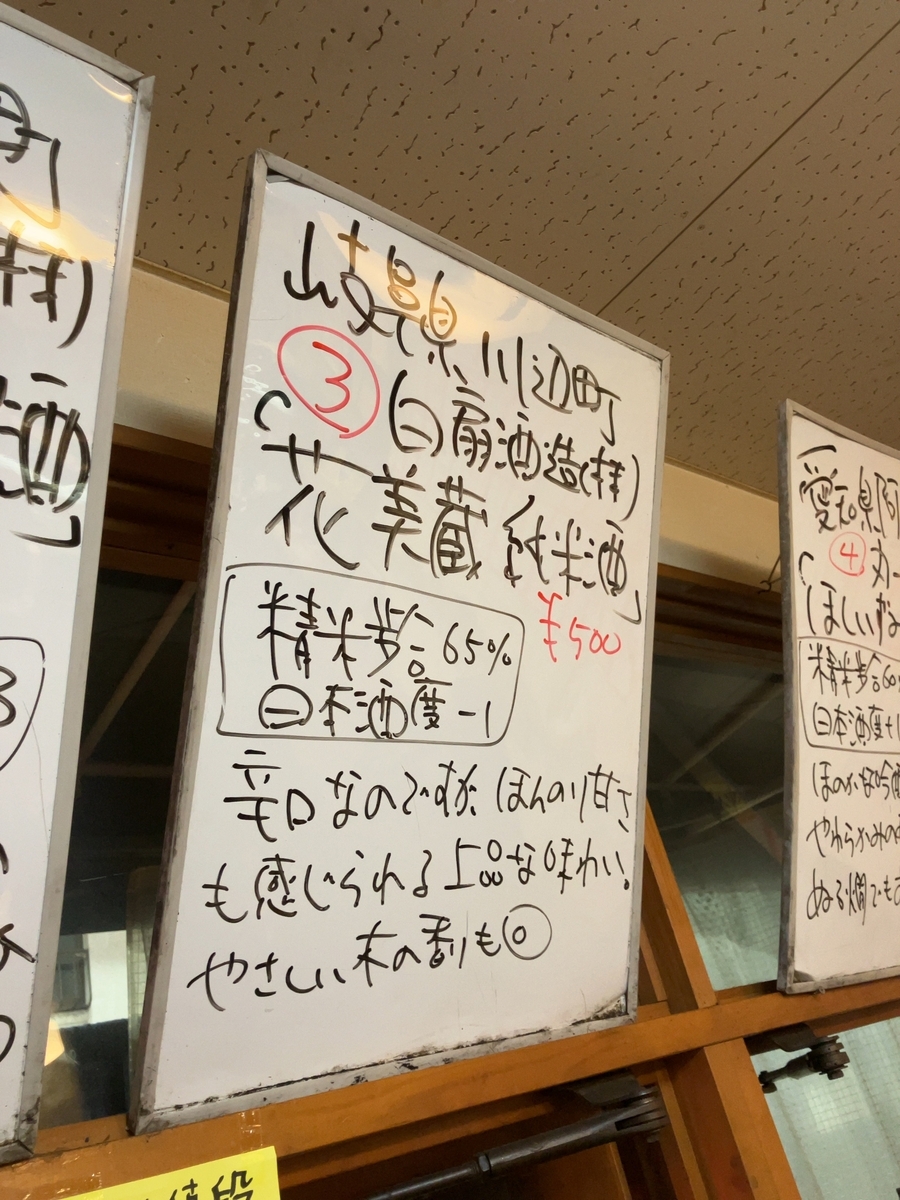 様)
酒」
岐阜県川辺町
③ 白扇酒造(様)
「花美蔵 純米酒」
¥500
精米歩合 65%
日本酒度 -1
辛口なのですが ほんのり甘さ
も感じられる上品な味わい。
やさしい木の香りも◎
(愛知県阿
④
「ほしいず
精米歩合60
日本酒度+1
ほのかな吟
やわらかみの
ぬる燗でも
値段